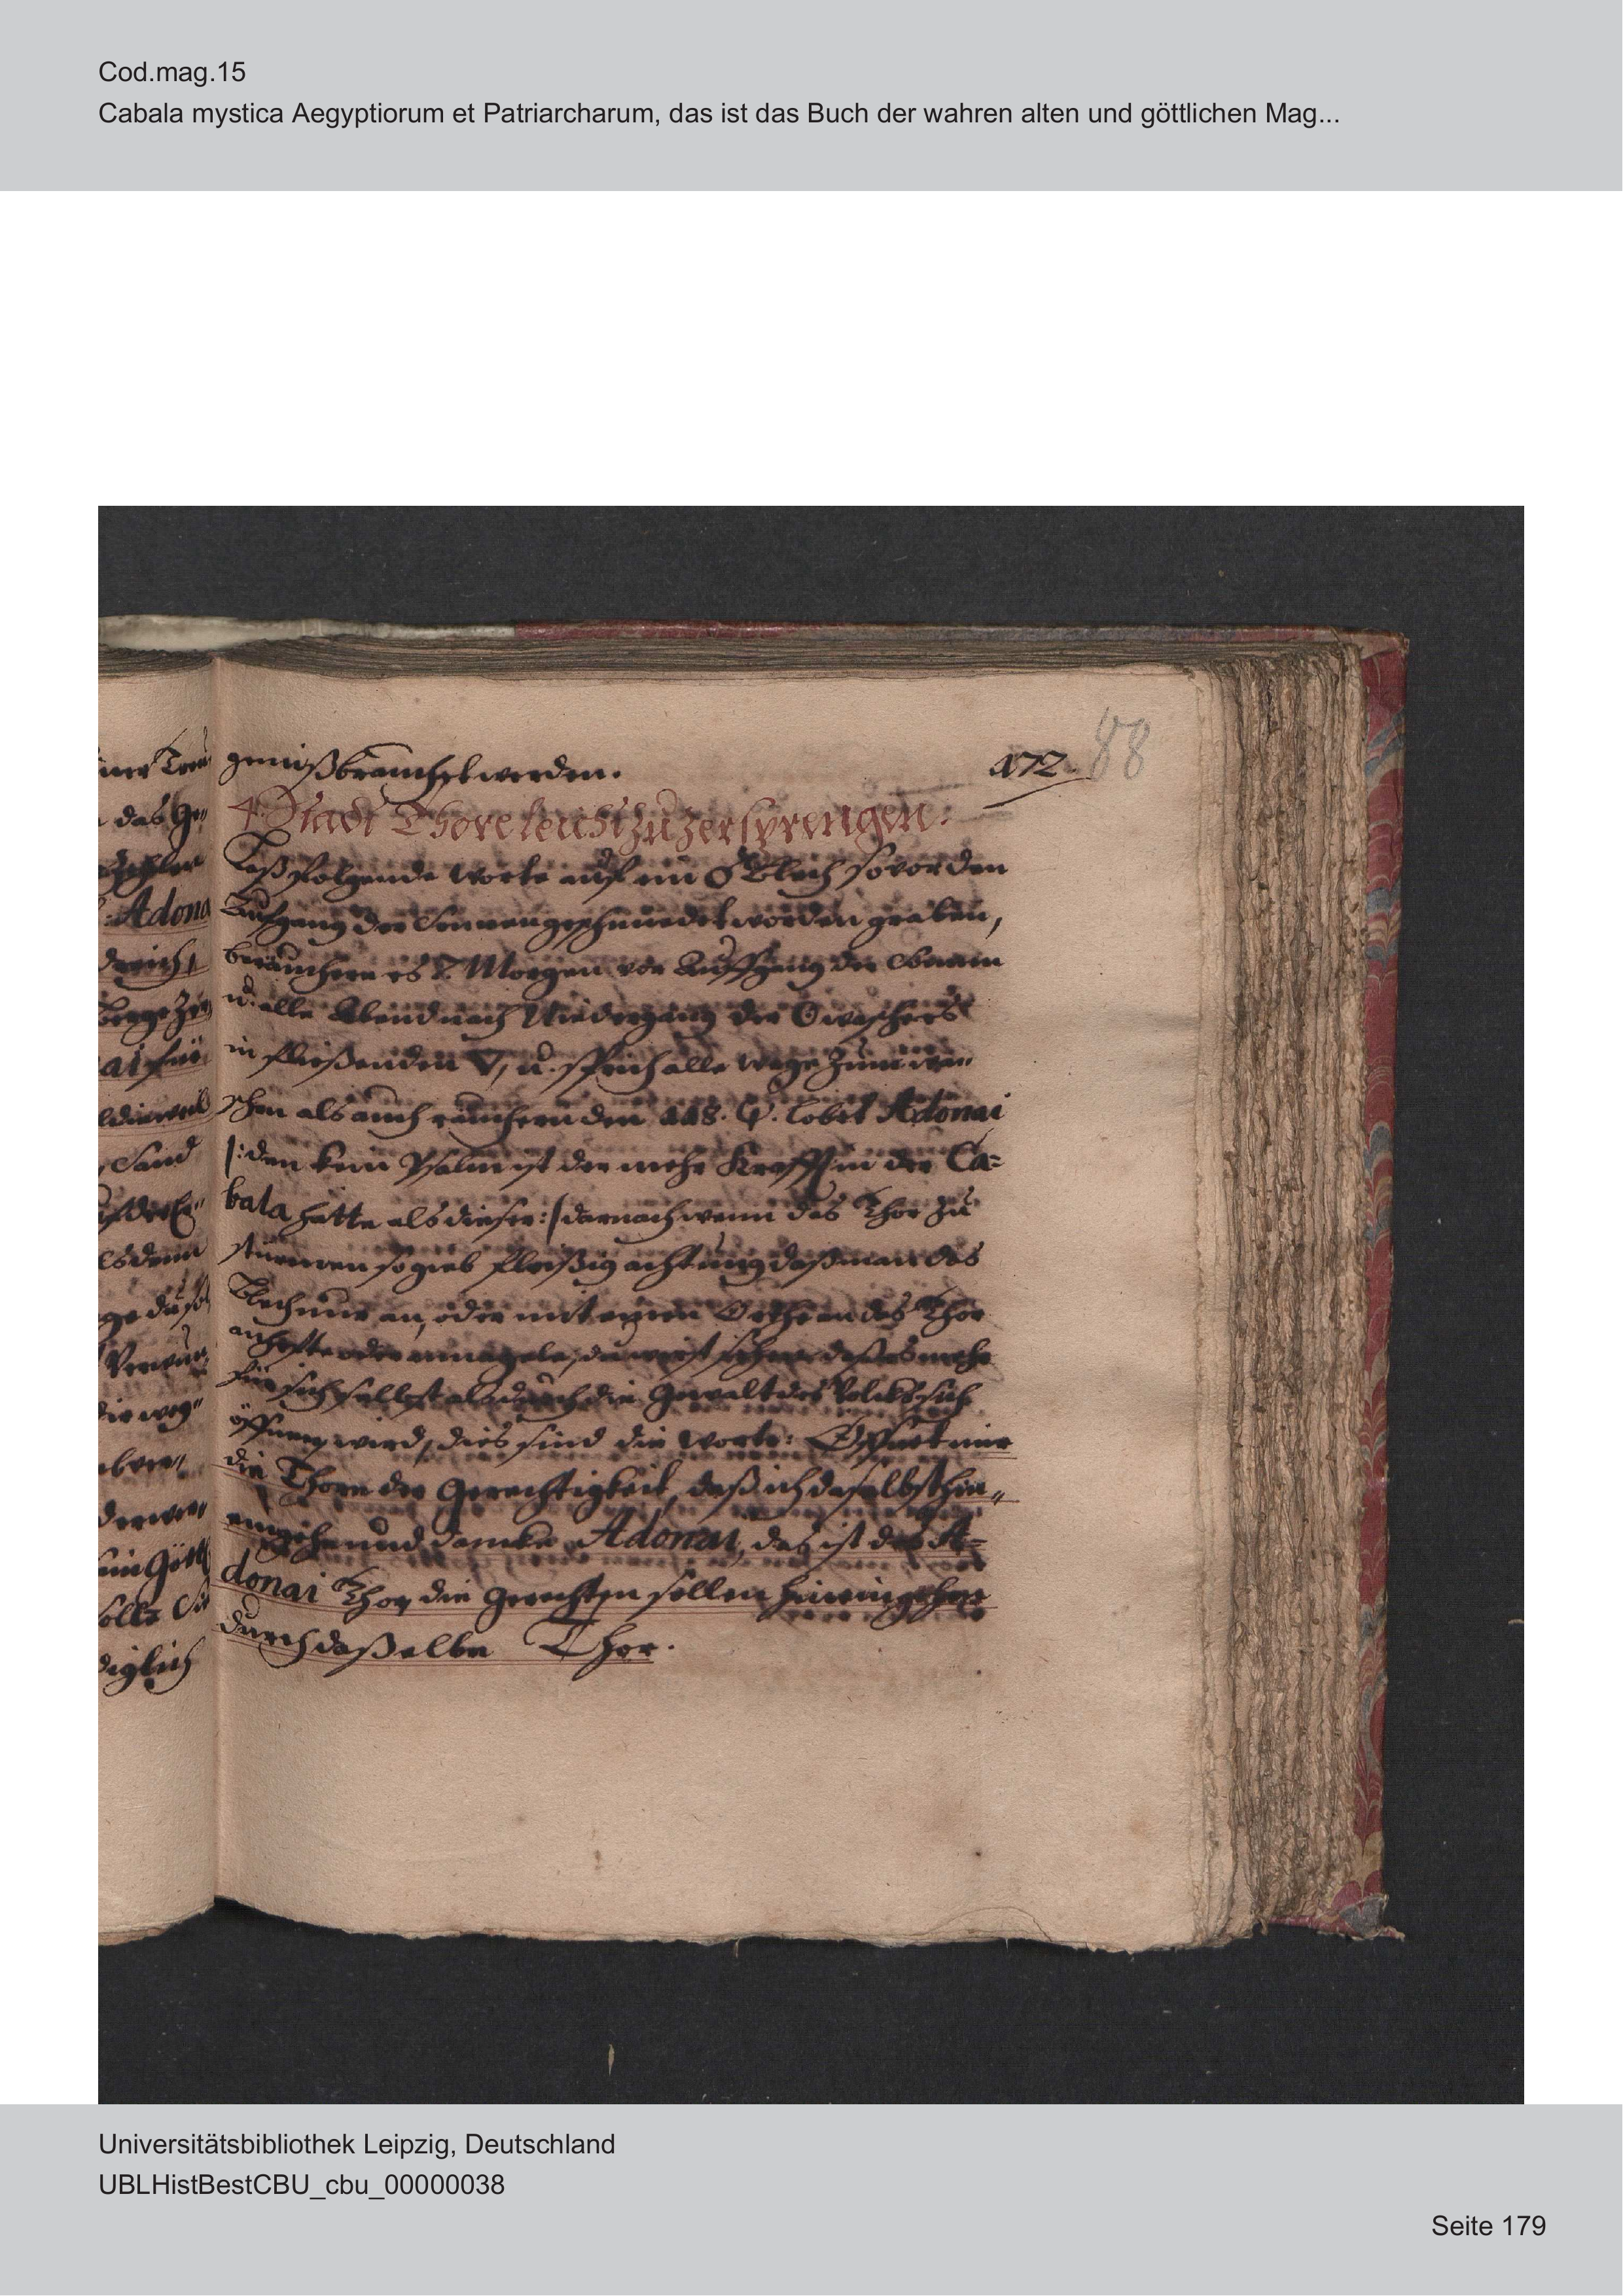 Cod.mag.15
Cabala mystica Aegyptiorum et Patriarcharum, das ist das Buch der wahren alten und göttlichen Mag...
gemißbrauchet werden.
172.
88
4. Stadt Thore leicht zu zersprengen:
Laß folgende Worte auf ein ♂ Blech so vor den
Aufgang der Sonnen geschmiedet worden graben,
beräuchere es 7. Morgen vor Auffgang der Sonnen
u. alle Abend nach Niedergang der ☉ wasche es
in fließenden ▽, u. sprich alle wege zum wa„
schen als auch räuchern den 118. ψ. Lobet Adonai
/: den kein Psalm ist der mehr Krafft in der Ca=
bala hätte als dieser :/ darnach wenn das Thor zu
stürmen so gieb fleißig achtung daß man das
Blech nur an, oder mit einen Orthe an das Thor
anhefte oder annagele, du wirst sehen daß es mehr
für sich selbst als durch die Gewalt des Volcks sich
öffnen wird, dies sind die Worte: Öffnet mir
die Thore der Gerechtigkeit, daß ich daselbst hin„
eingehe und dancke Adonai, das ist das A=
donai Thor die Gerechten sollen hineingehen
durch daßelbe Thor.
Universitätsbibliothek Leipzig, Deutschland
UBLHistBestCBU_cbu_00000038
Seite 179